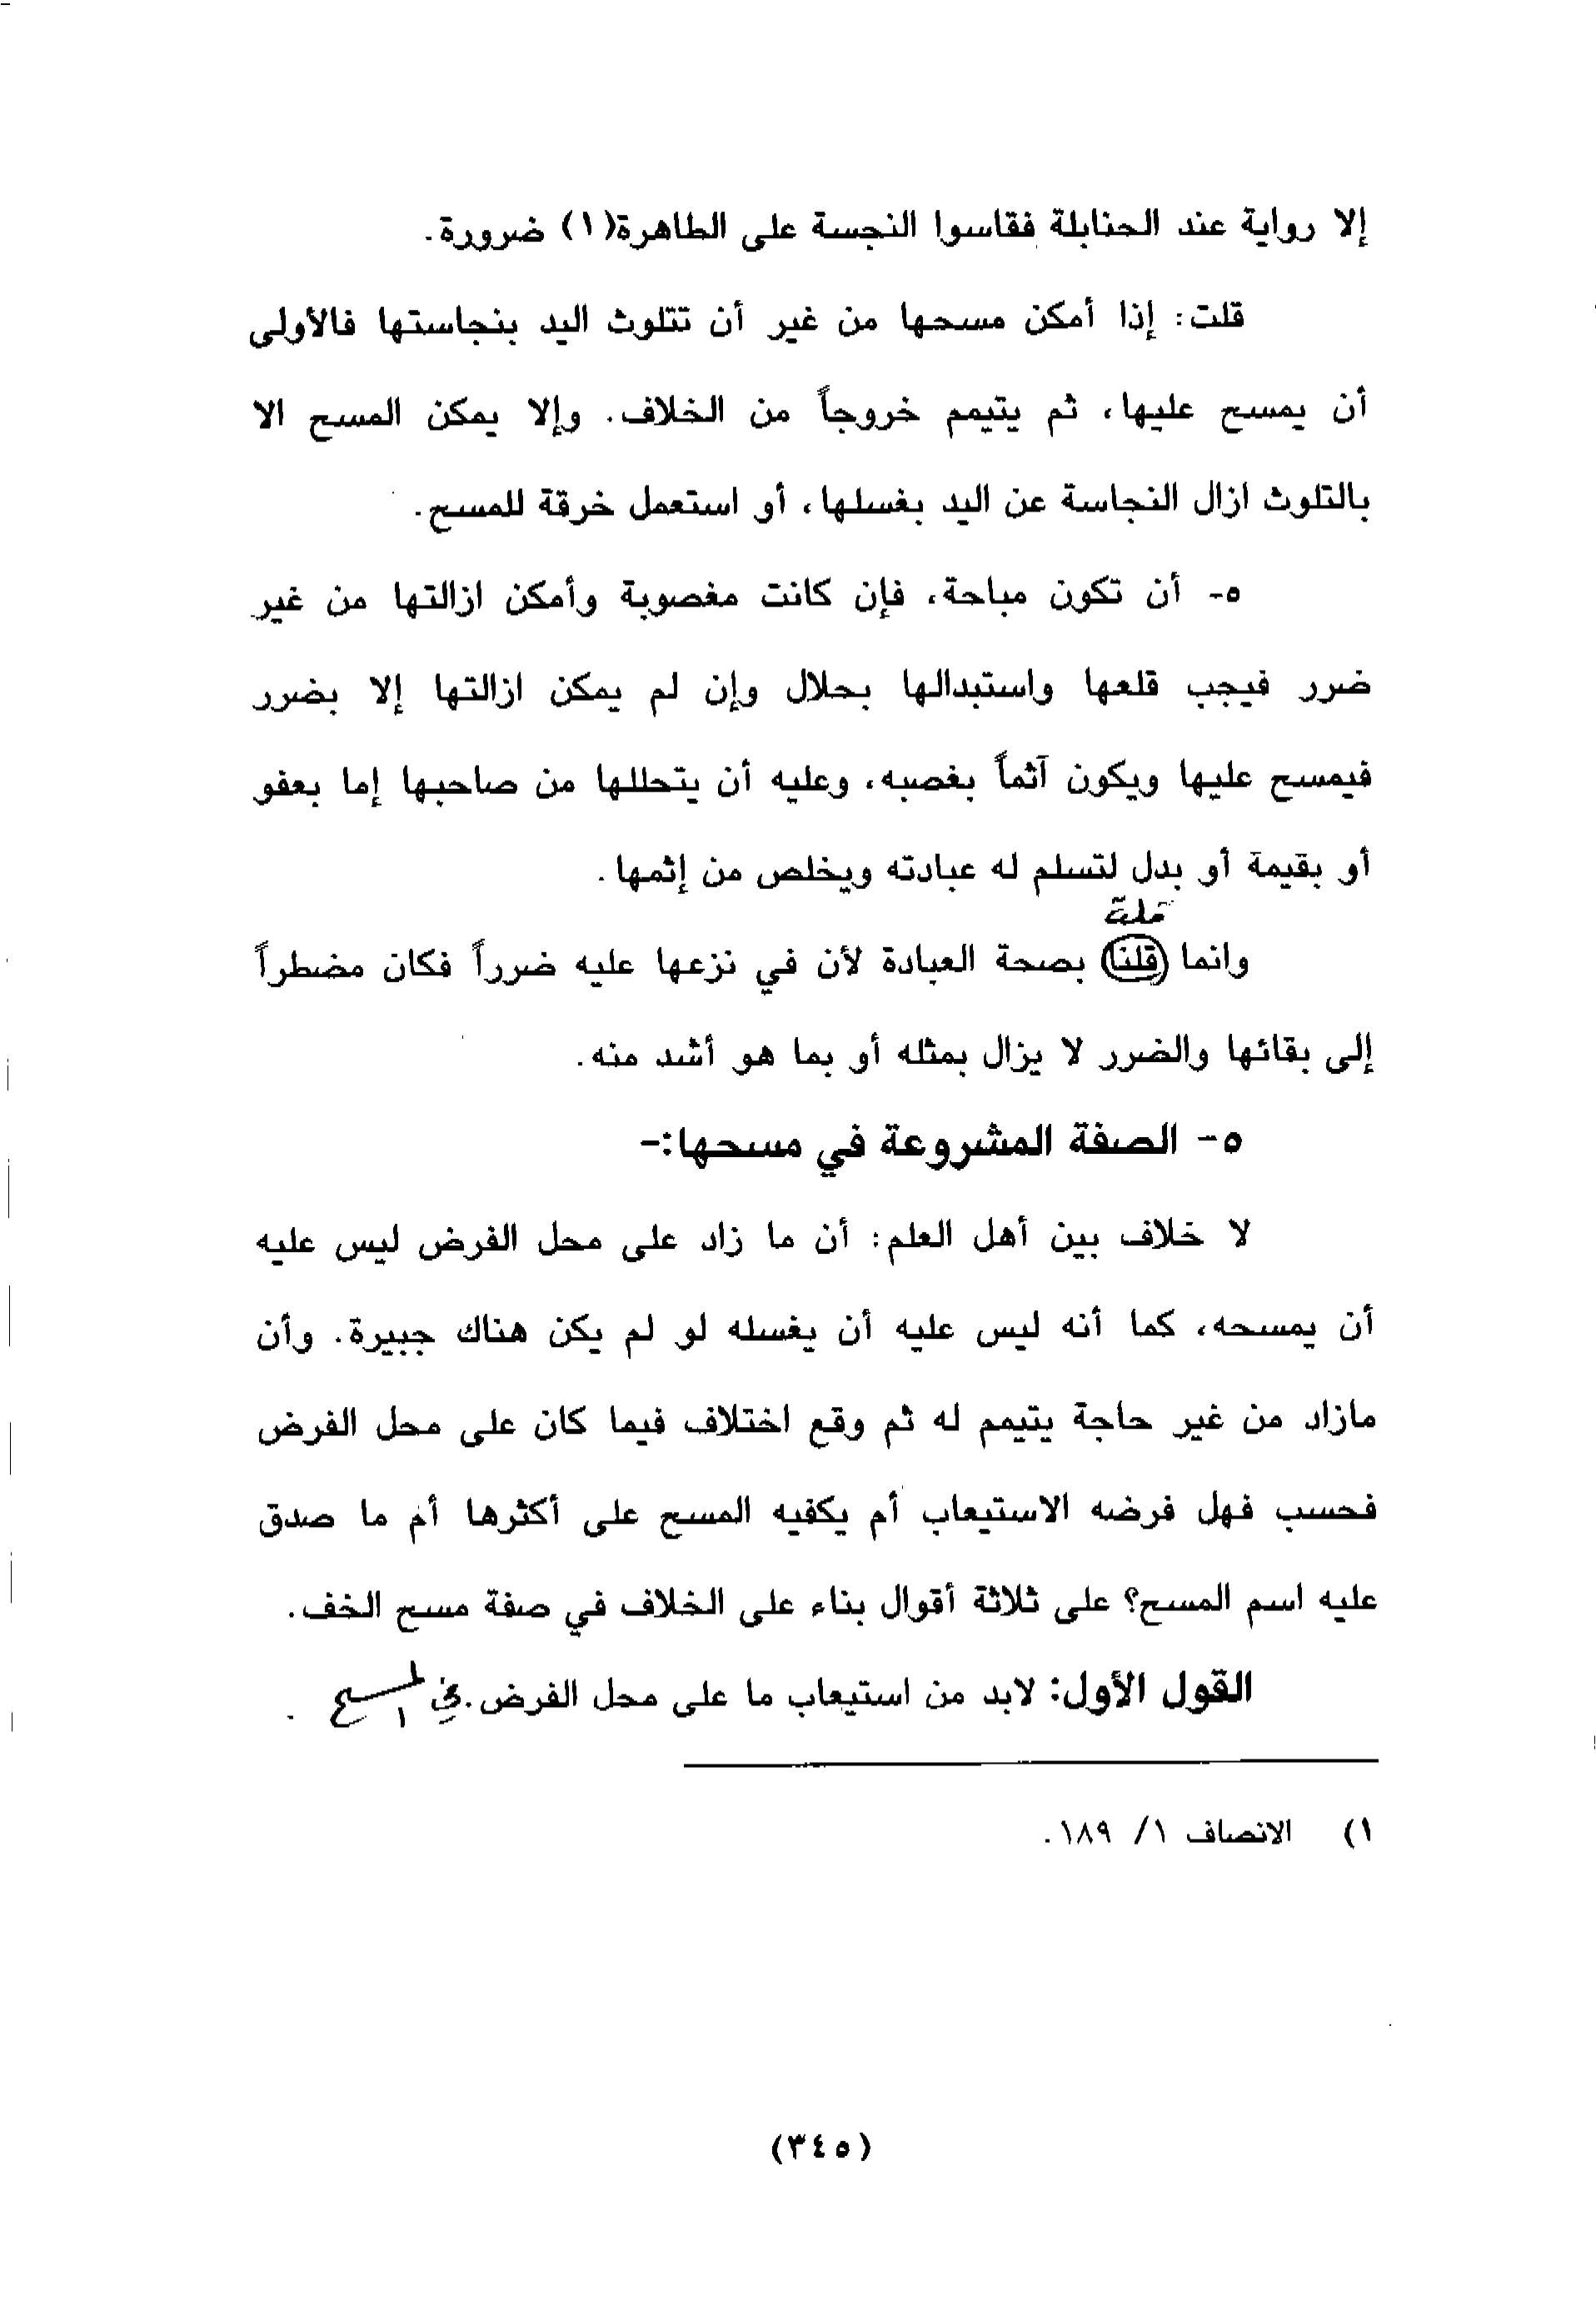 إلا رواية عند الحنابلة فقاسوا النجسة على الطاهرة(١) ضرورة.
قلت: إذا أمكن مسحها من غير أن تتلوث اليد بنجاستها فالأولى
أن يمسح عليها، ثم يتيمم خروجاً من الخلاف. وإلا يمكن المسح الا
بالتلوث ازال النجاسة عن اليد بغسلها، أو استعمل خرقة للمسح.
٥- أن تكون مباحة، فإن كانت مغصوبة وأمكن ازالتها من غير
ضرر فيجب قلعها واستبدالها بحلال وإن لم يمكن ازالتها إلا بضرر
فيمسح عليها ويكون آثماً بغصبه، وعليه أن يتحللها من صاحبها إما بعفو
أو بقيمة أو بدل لتسلم له عبادته ويخلص من إثمها.
وانما قلنا بصحة العبادة لأن في نزعها عليه ضرراً فكان مضطراً
إلى بقائها والضرر لا يزال بمثله أو بما هو أشد منه.
٥- الصفة المشروعة في مسحها:-
لا خلاف بين أهل العلم: أن ما زاد على محل الفرض ليس عليه
أن يمسحه، كما أنه ليس عليه أن يغسله لو لم يكن هناك جبيرة. وأن
مازاد من غير حاجة يتيمم له ثم وقع اختلاف فيما كان على محل الفرض
فحسب فهل فرضه الاستيعاب أم يكفيه المسح على أكثرها أم ما صدق
عليه اسم المسح؟ على ثلاثة أقوال بناء على الخلاف في صفة مسح الخف.
القول الأول: لابد من استيعاب ما على محل الفرض. في المسح.
١) الانصاف ١/ ١٨٩.
(٣٤٥)